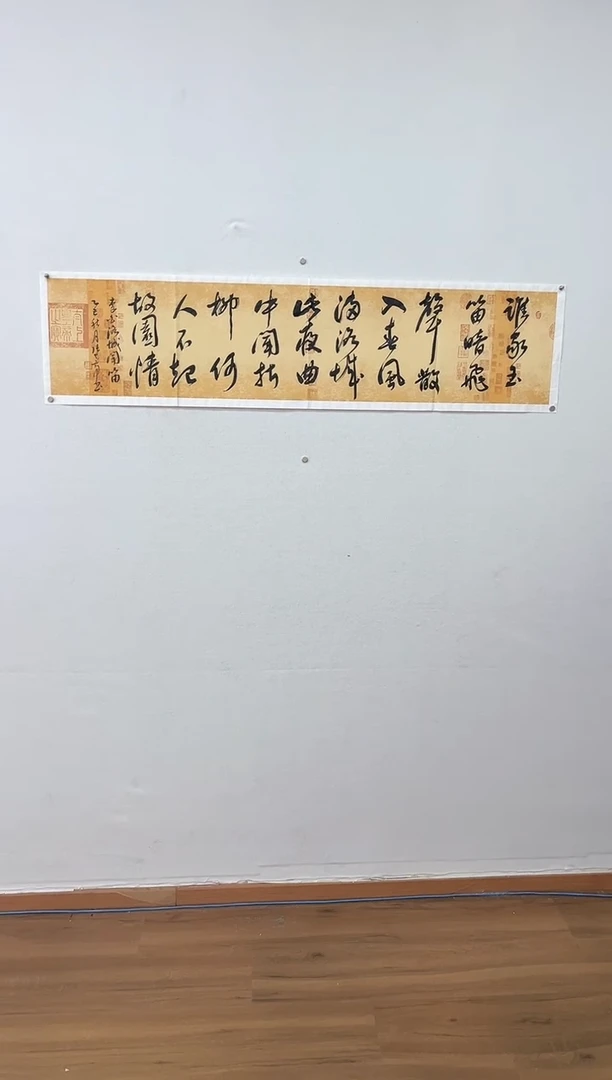 誰家玉
笛暗飛
聲散
入春風
滿洛城
此夜曲
中聞折
柳何
人不起
故園情
李白洛城聞笛
乙巳秋月